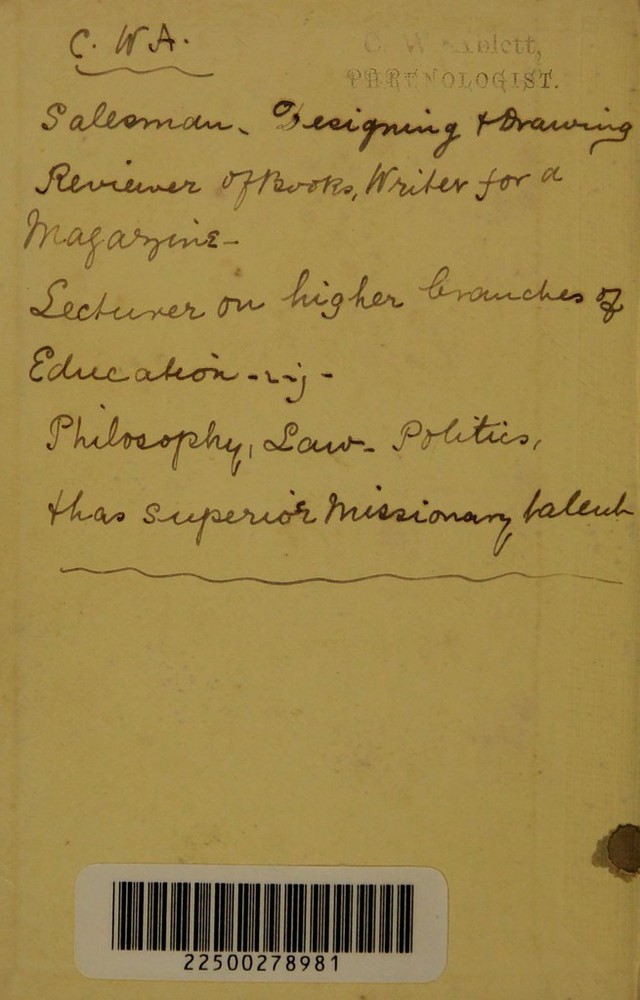 C. W A.
C. W
PHRENOLOGIST.
Salesman. Designing & Drawing
Reviewer of Books, Writer for a
Magazine -
Lecturer on higher branches of
Education - viz -
Philosophy, Law - Politics,
& has superior Missionary talent
22500278981